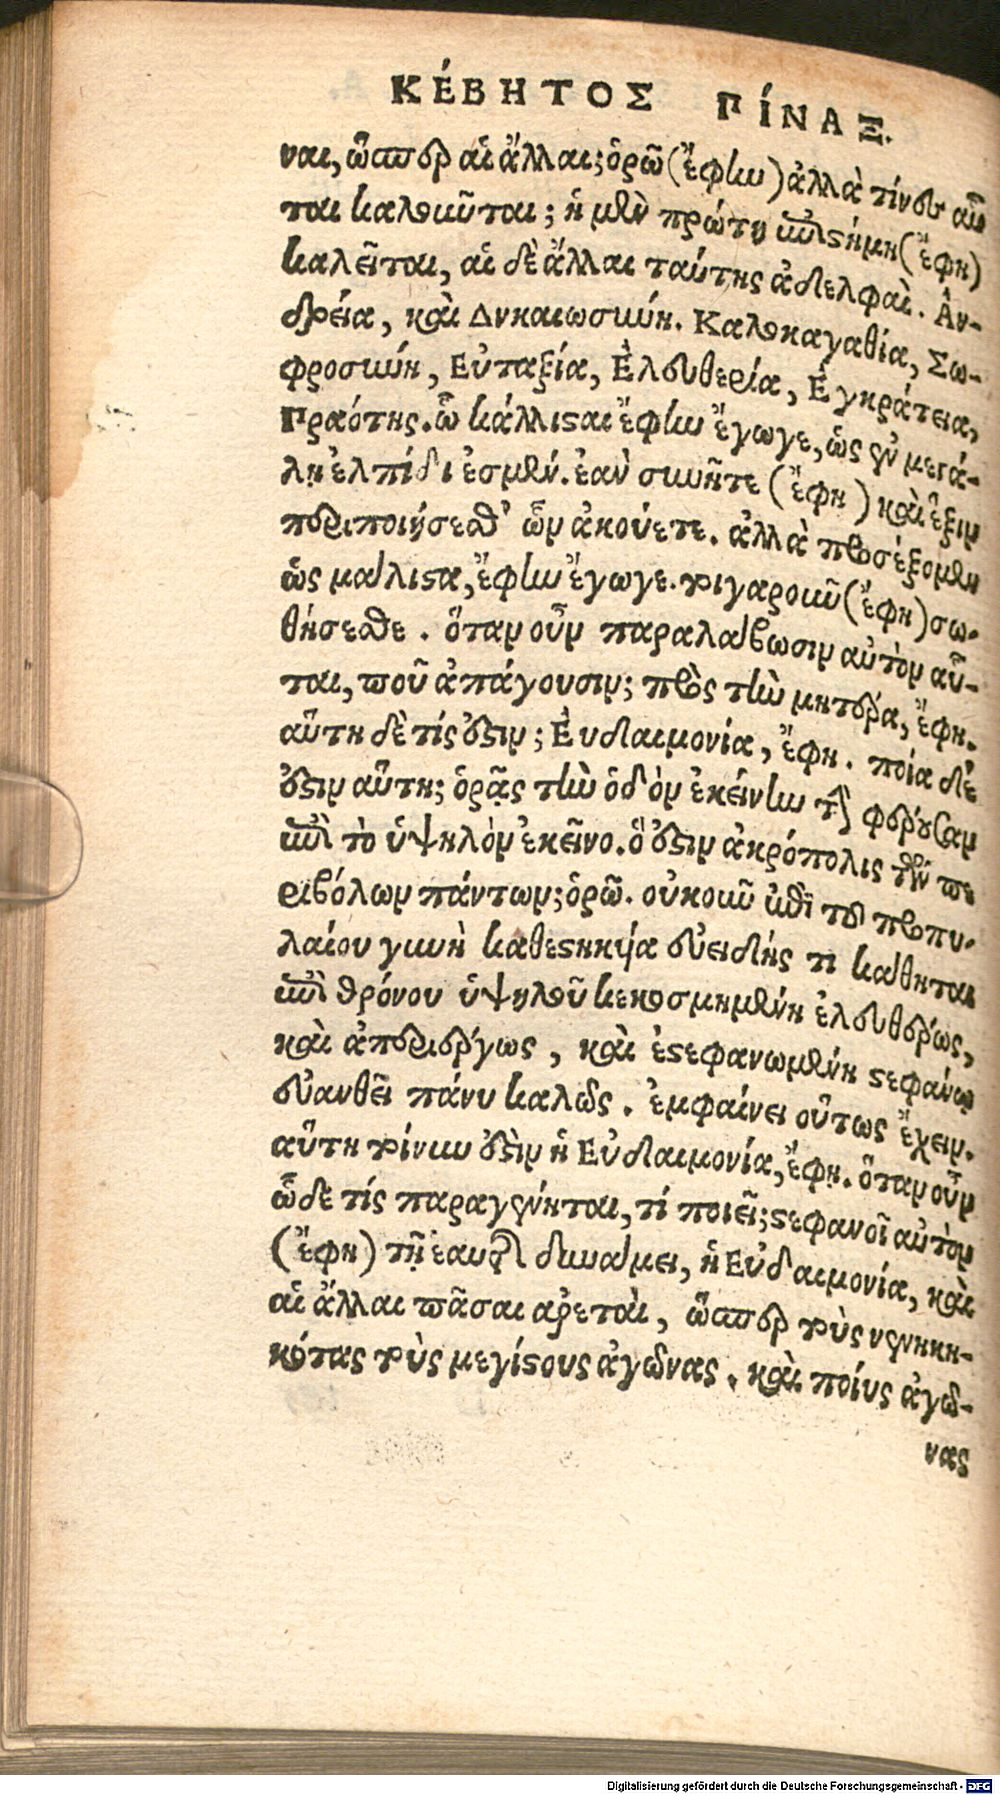 ΚΈΒΗΤΟΣ ΠΊΝΑΞ.
ναι, ὥσπερ αἱ ἄλλαι; ὁρῶ (ἔφην) ἀλλὰ τίνες αὗ
ται καλοῦνται; ἡ μὲν πρώτη ἐπιστήμη (ἔφη)
καλεῖται, αἱ δὲ ἄλλαι ταύτης ἀδελφαὶ. Ἀν-
δρεία, καὶ Δικαιοσύνη. Καλοκαγαθία, Σω-
φροσύνη, Εὐταξία, Ἐλευθερία, Ἐγκράτεια,
Πραότης. ὦ κάλλισαι ἔφην ἔγωγε, ὡς ἐν μεγά-
λῃ ἐλπίδι ἐσμέν. ἐὰν συνῆτε (ἔφη) καὶ ἕξιν
περιποιήσεσθ' ὧν ἀκούετε. ἀλλὰ προσέξομεν
ὡς μάλιστα, ἔφην ἔγωγε. τοιγαροῦν (ἔφη) σω-
θήσεσθε. ὅταν οὖν παραλάβωσιν αὐτὸν αὗ-
ται, ποῦ ἀπάγουσιν; πρὸς τὴν μητέρα, ἔφη.
αὕτη δὲ τίς ἐστιν; Εὐδαιμονία, ἔφη. ποία δέ
ἐστιν αὕτη; ὁρᾷς τὴν ὁδὸν ἐκείνην τὴν φέρουσαν
ἐπὶ τὸ ὑψηλὸν ἐκεῖνο. ὅ ἐστιν ἀκρόπολις τῶν πε
ριβόλων πάντων; ὁρῶ. οὐκοῦν ἐπὶ τοῦ προπυ-
λαίου γυνὴ καθεστηκυῖα εὐειδής τι κάθηται
ἐπὶ θρόνου ὑψηλοῦ κεκοσμημένη ἐλευθέρως,
καὶ ἀπεριέργως, καὶ ἐστεφανωμένη στεφάνῳ
εὐανθεῖ πάνυ καλῶς. ἐμφαίνει οὕτως ἔχειν.
αὕτη τοίνυν ἐστὶν ἡ Εὐδαιμονία, ἔφη. ὅταν οὖν
ὧδε τίς παραγένηται, τί ποιεῖ; στεφανοῖ αὐτὸν
(ἔφη) τῇ ἑαυτῆς δυνάμει, ἡ Εὐδαιμονία, καὶ
αἱ ἄλλαι πᾶσαι ἀρεταὶ, ὥσπερ τοὺς νενικη-
κότας τοὺς μεγίστους ἀγῶνας. καὶ ποίους ἀγῶ-
νας
Digitalisierung gefördert durch die Deutsche Forschungsgemeinschaft - DFG